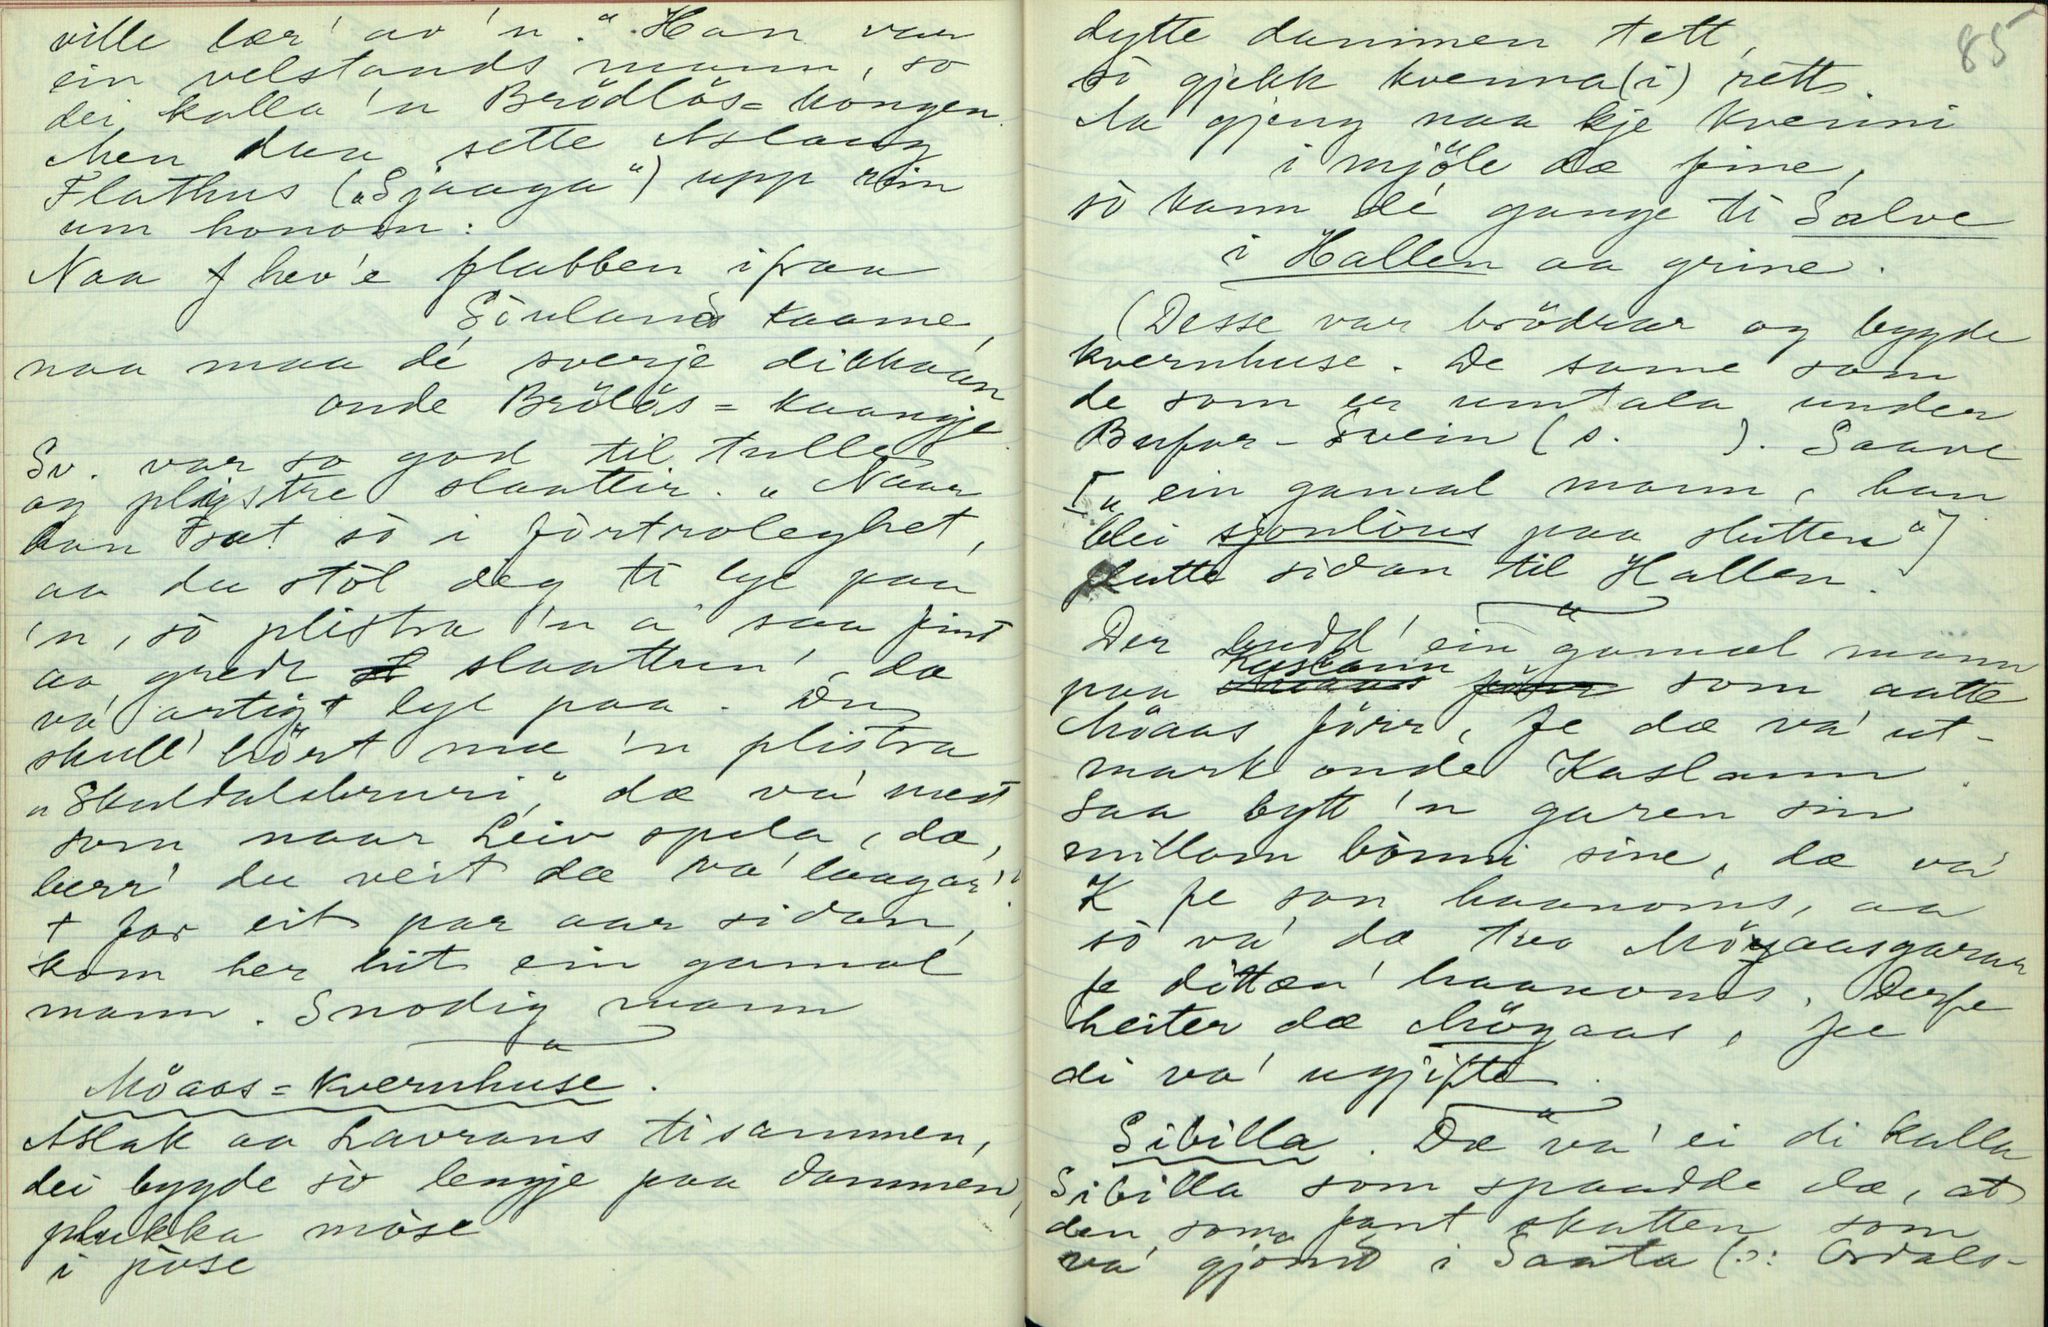 ville lær' av 'n." Han var
ein velstands mann, so
dei kalla 'n Brödlös-kongen.
Men daa sette Aslaug
Flathus ("Sjaaga") upp rim
um honom:
Naa hev'e flabben ifraa
Söuland kaame,
naa maa dé sverje dikkaan
onde Brölös-kaangje
Sv. var so god til tulle
og plystre slaattir. "Naar
han sat sò i fòrtrolegheit,
aa du stòl deg ti lye paa
'n, sò plistra 'n a saa fint
aa greidt slaattun', dæ
va' artigt lye paa. Du
skull' hört nu 'n plistra
"Skuldalsbruri", dæ va' mest
som naar Leiv spela, dæ,
berr' du veit dæ va' laagar'".
+ for eit par aar sidan,
kom her hit ein gamal
mann. Snodig mann
Möaas-kvernhuse.
Aslak aa Lavrans tisammen,
dei bygde sò lengje paa dammen,
plukka mòse
i pose
85
dytte dammen tett,
sò gjekk kvenna(i) rett.
Aa gjeng naa kje kvenni
i mjöle dæ fine,
sò kann dé gange ti Salve
i Hallen aa grine.
(Desse var brödrar og bygde
kvernhuse. De same som
de som er umtala under
Bufar-Svein (s. ). Saave
["ein gamal mann, han
blei sjonlòus paa slutten"]
flutte sidan til Hallen.
Der budd' ein gamal mann
paa Kaslann som aatte
Möaas förr, fe dæ va' ut-
mark onde Kaslann.
Saa bytt 'n garen sin
millom bònni sine, dæ va'
K fe son haanoms, aa
sò va' dæ tvo Möyaasgaraa
fe dittan' haanoms. Derfe
heiter dæ Möyaas, fe
di va' ugjifte.
Sibilla. Dæ va' ei di kalla
Sibilla som spaadde dæ, at
den som fant skatten som
va' gjömt i Saata (ɔ: Ordals-